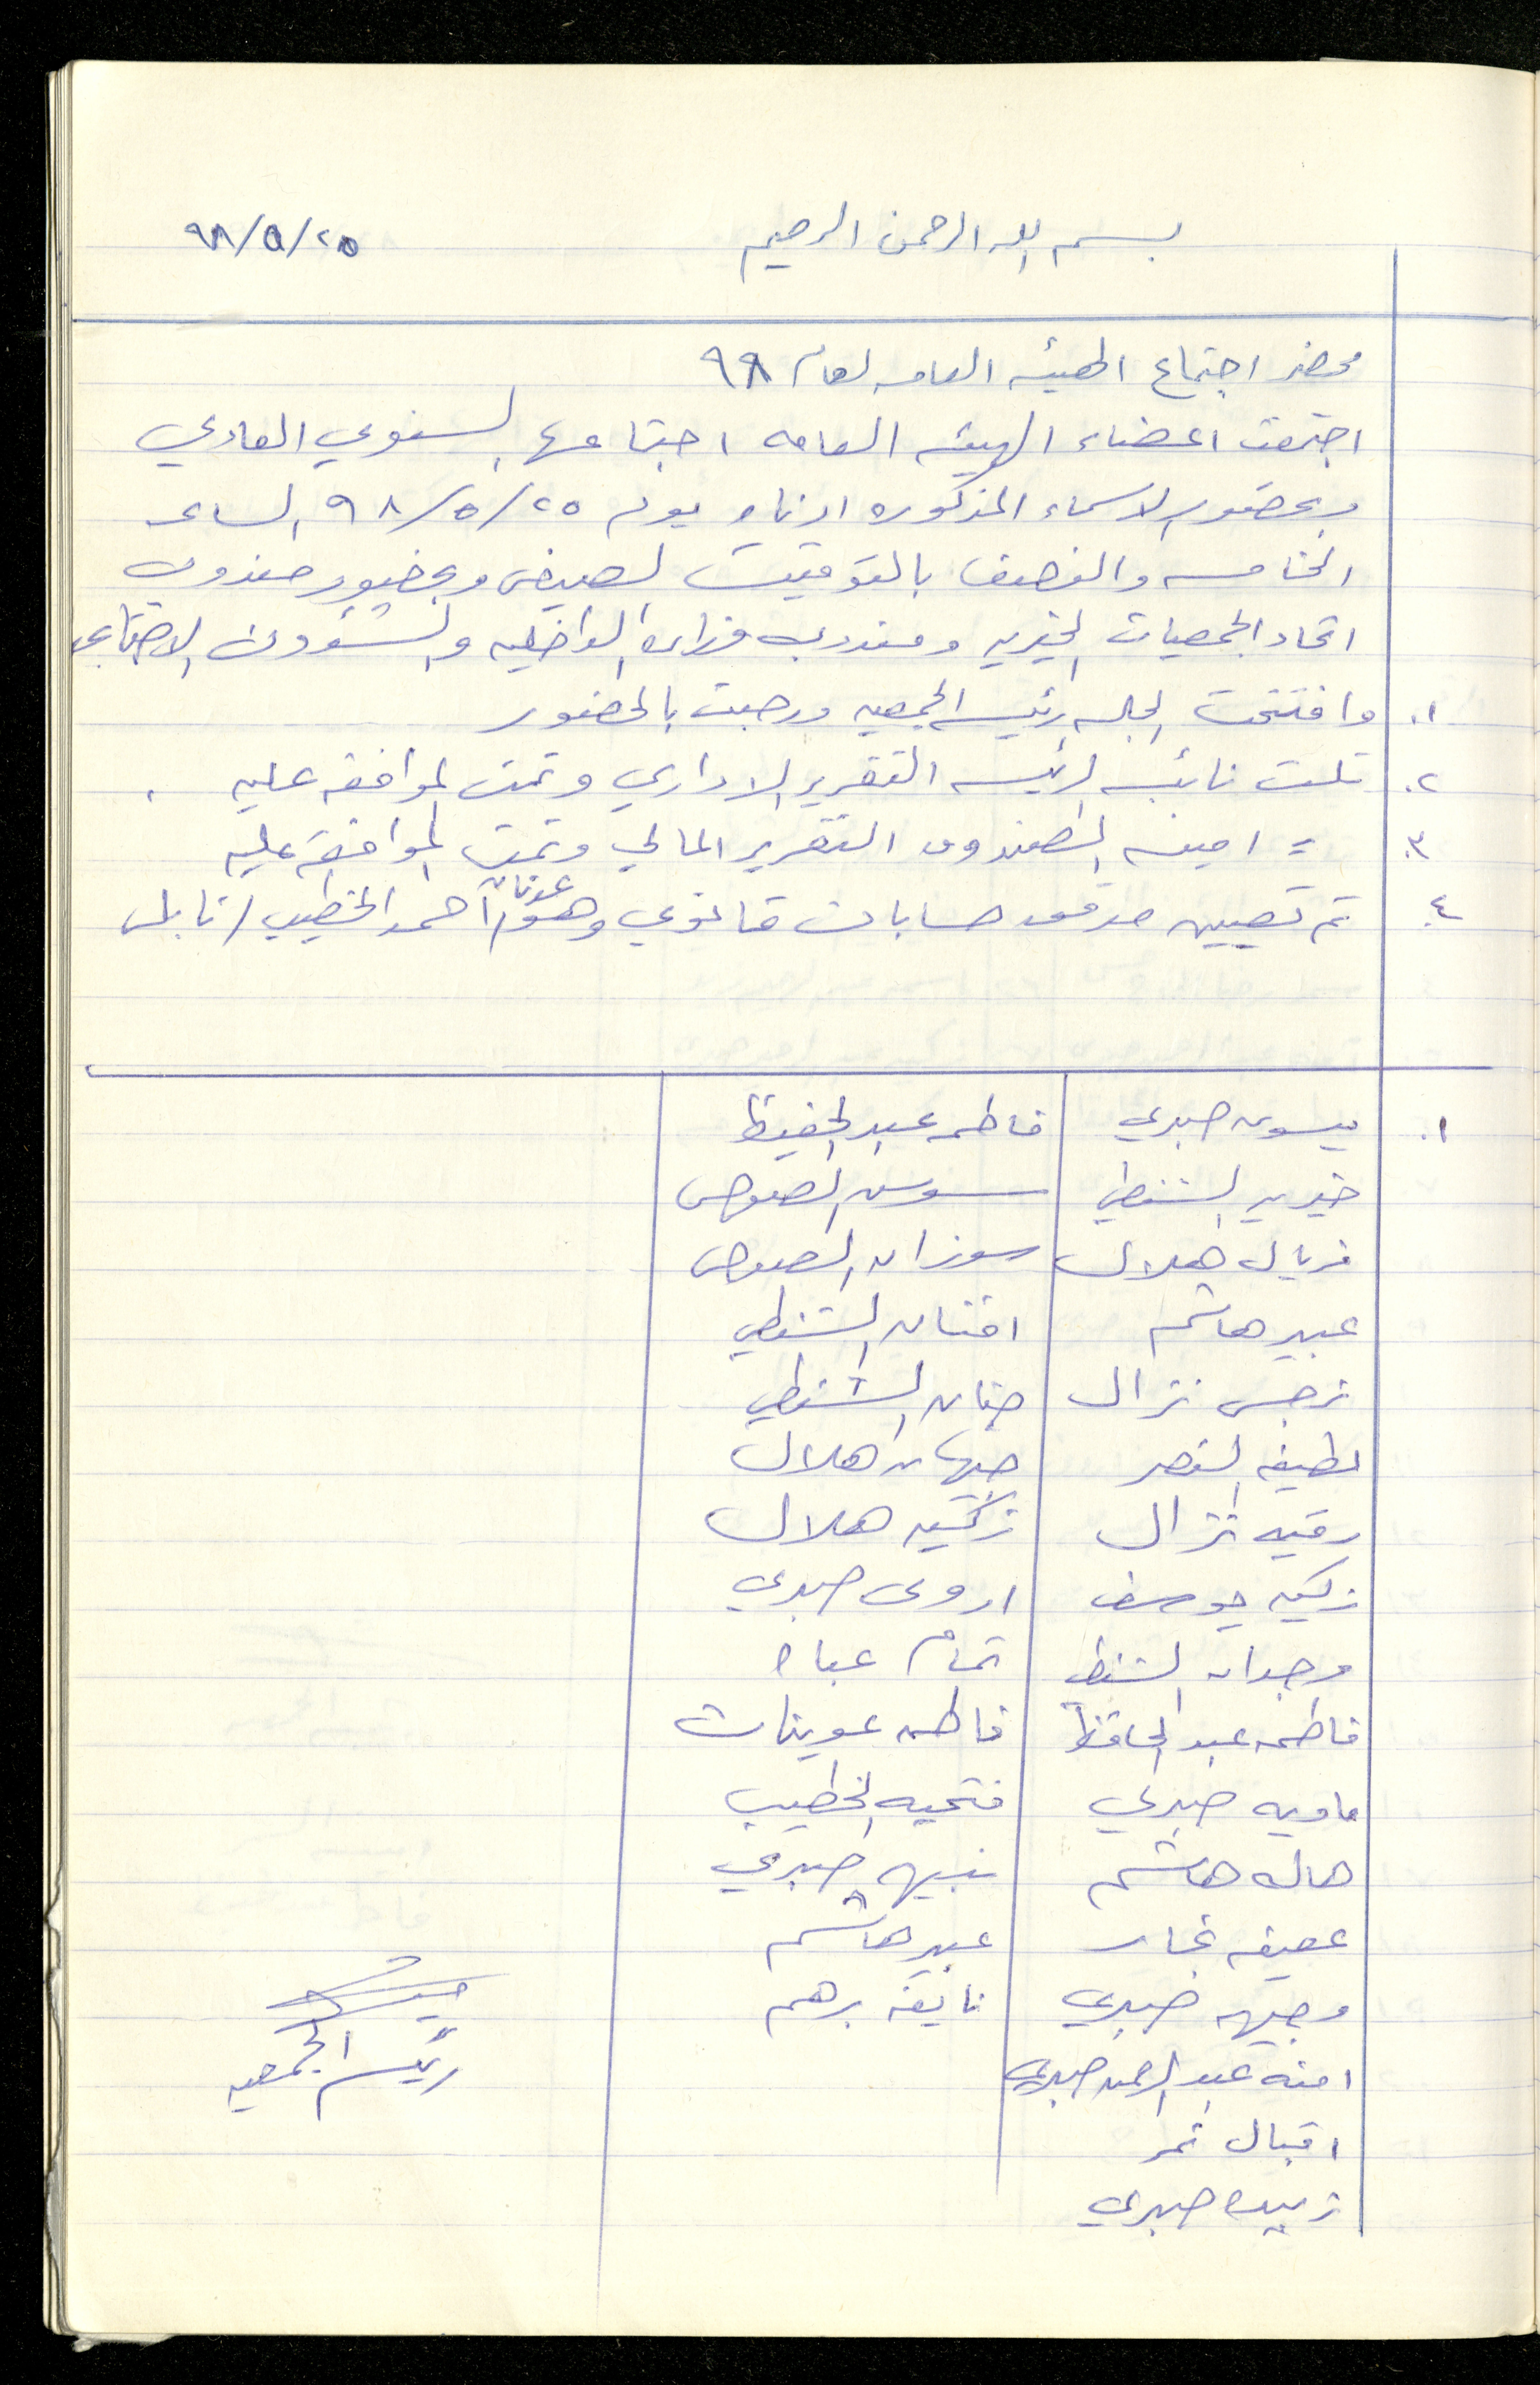 بسم الله الرحمن الرحيم
٩٨/٥/٢٥
محضر اجتماع الهيئه العامه لعام ٩٨
اجتمعت اعضاء الهيئه العامه اجتماعها السنوي العادي
وبحضور الاسماء المذكوره ادناه يوم ٢٥/٥/٩٨ الساعه
الخامسه والنصف بالتوقيت الصيفي وبحضور مندوب
اتحاد الجمعيات الخيريه ومندوب وزارة الداخليه والشؤون الاجتماعيه
١. وافتتحت الجلسه رئيسه الجمعيه ورحبت بالحضور
٢. تلت نائبه الرئيسه التقرير الاداري وتمت الموافقه عليه .
٣. = امينه الصندوق التقرير المالي وتمت الموافقه عليه
٤. تم تعيين مدقق حسابات قانوني وهو عدنان احمد الخطيب / نابلس
١. ميسون صبري
فاطمه عبد الحفيظ
خيريه الشنطي
سوسن الصوص
فريال هلال
سوزان الصوص
عبير هاشم
افتنان الشنطي
نرجس نزال
حنان الشنطي
لطيفه النصر
جيهان هلال
رقيه نزال
زكيه هلال
زكيه يوسف
اروى صبري
وجدان الشنطي
تمام عباه
فاطمه عبد الحافظ
فاطمه عوينات
ماويه صبري
فتحيه الخطيب
هاله هاشم
نبيهه صبري
عفيفه نجار
عبير هاشم
وجيهه صبري
نايفه برهم
امنه عبد الرحمن صبري
رئيسه الجمعيه
اقبال نمر
زبيده صبري